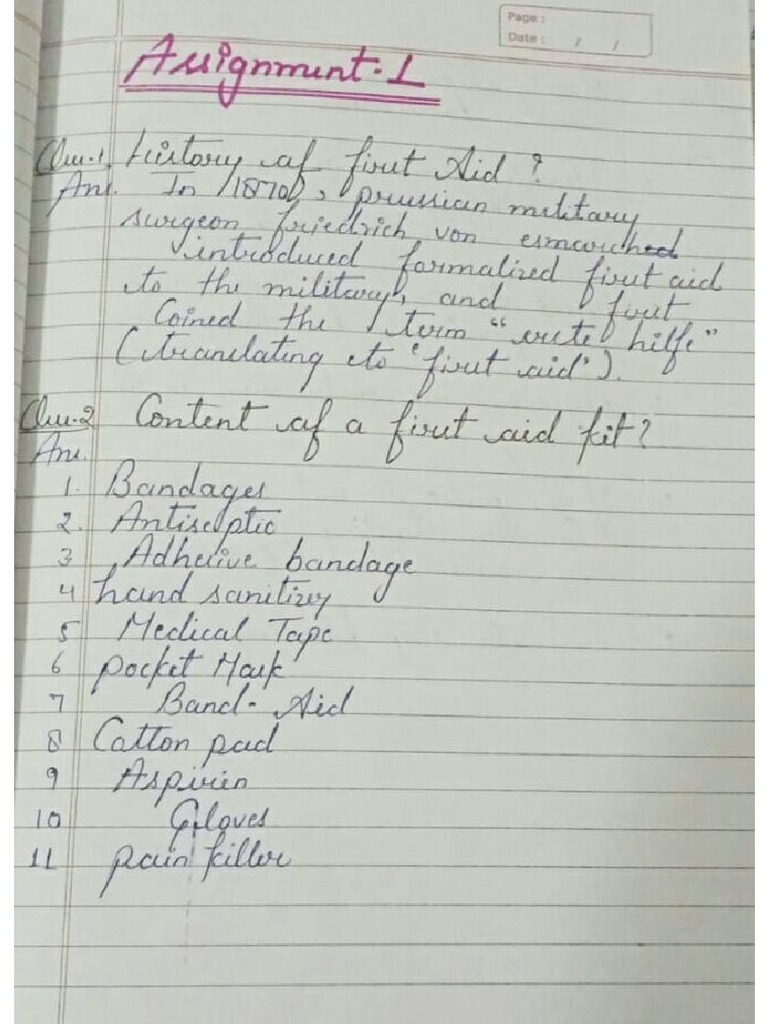 Page :
Date : / /
Assignment-1
Que.1. History of first Aid ?
Ans. In 1870, prussian military
surgeon friedrich von esmarched
introduced formalized first aid
to the military, and first
Coined the term "erste hilfe"
(translating to 'first aid').
Que.2 Content of a first aid kit?
Ans.
1. Bandages
2. Antiseptic
3 Adhesive bandage
4 hand sanitizer
5 Medical Tape
6 pocket Mask
7 Band-Aid
8 Cotton pad
9 Aspirin
10 Gloves
11 pain killer